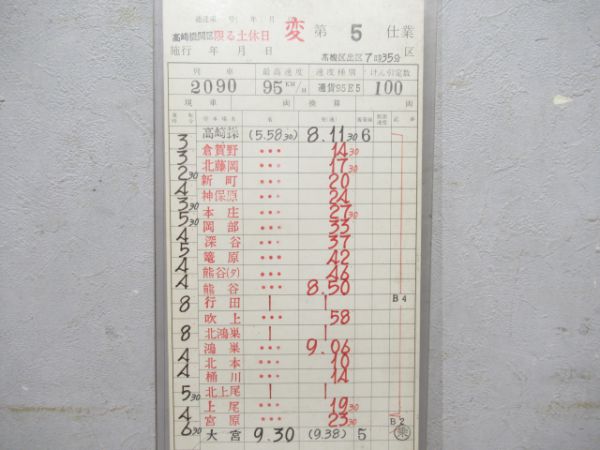 年 月
高崎機関区 限る土休日 変 第 5 仕業
施行 年 月 日 高機区出区7時35分 区
列車 最高速度 速度種別 けん引定数
2090 95 KM/H 通貨95E5 100
現車 両 換算 両
高崎操 (5.58 30) 8.11 30 6
3 倉賀野 ••• 14 30
3 北藤岡 ••• 17 30
2 30 新町 ••• 20
4 神保原 ••• 24
3 30 本庄 ••• 27 30
5 30 岡部 ••• 33
4 深谷 ••• 37
5 篭原 ••• 42
4 熊谷(タ) ••• 46
4 熊谷 ••• 8.50
行田 | | B4
8 吹上 ••• 58
北鴻巣 | |
8 鴻巣 ••• 9.06
4 北本 ••• 10
4 桶川 ••• 14
北上尾 | |
5 30 上尾 ••• 19 30
4 宮原 ••• 23 30 B2
6 30 大宮 9.30 (9.38) 5 乗